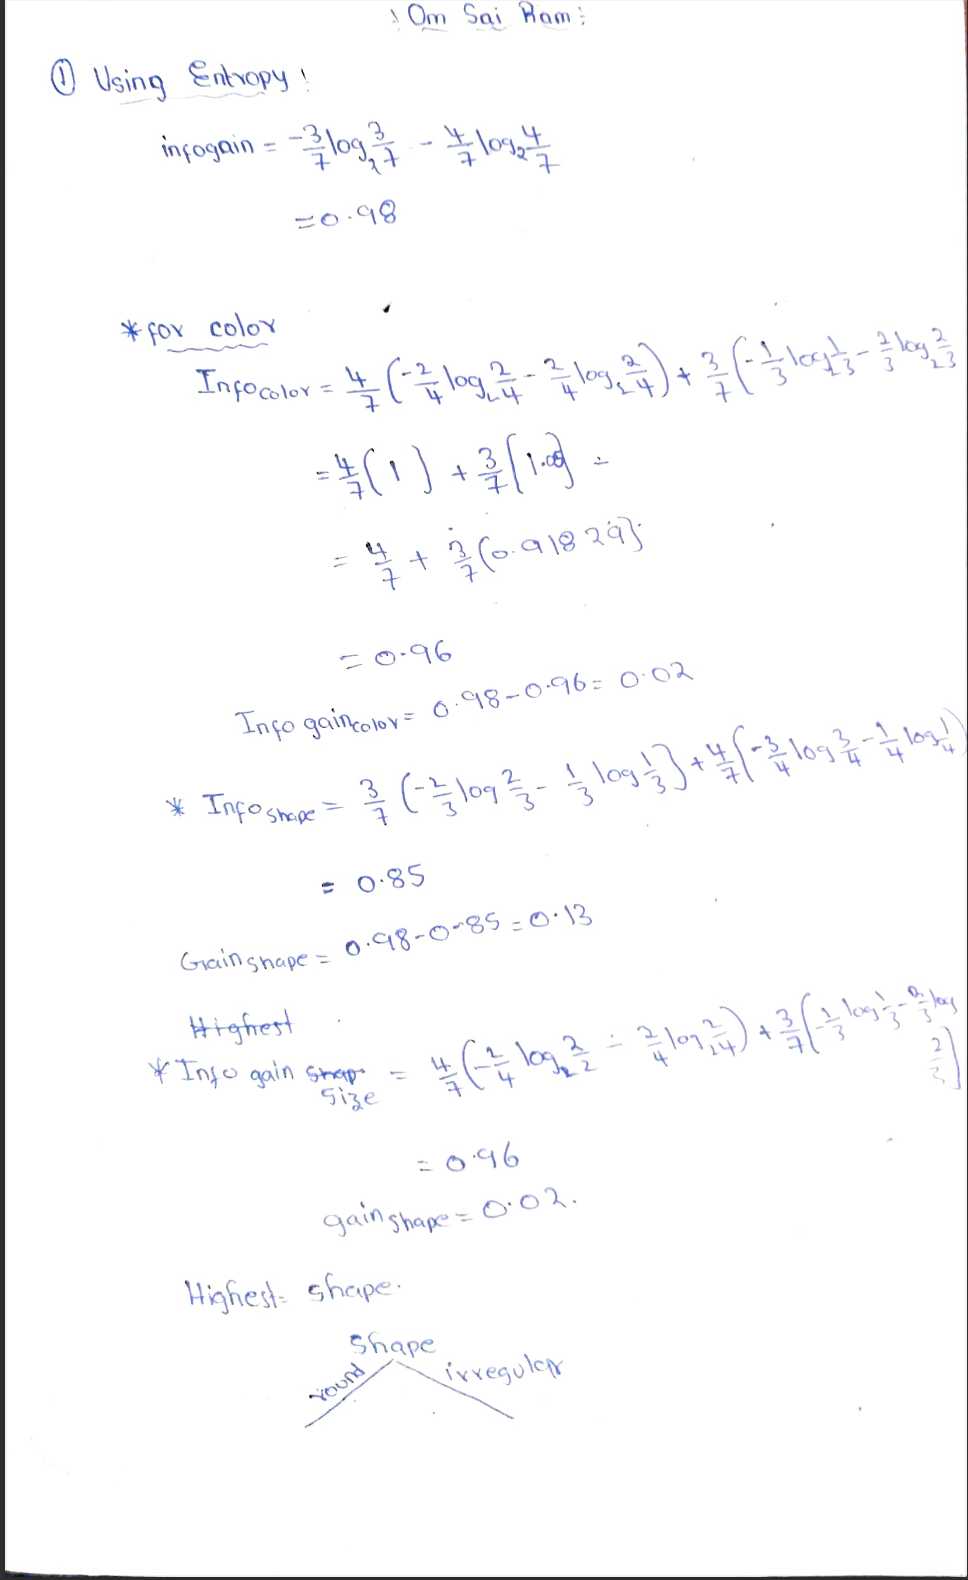 : Om Sai Ram :
① Using Entropy !
infogain = -3/7 log₂ 3/7 - 4/7 log₂ 4/7
= 0.98
* for color
Infocolor = 4/7 (-2/4 log₂ 2/4 - 2/4 log₂ 2/4) + 3/7 (-1/3 log₂ 1/3 - 2/3 log₂ 2/3
= 4/7 (1) + 3/7 (1.) =
= 4/7 + 3/7 (0.91829)
= 0.96
Info gaincolor = 0.98-0.96 = 0.02
* Infoshape = 3/7 (-2/3 log 2/3 - 1/3 log 1/3) + 4/7 (-3/4 log 3/4 - 1/4 log 1/4)
= 0.85
Gainshape = 0.98-0.85 = 0.13
Highest
* Info gain shap size = 4/7 (-2/4 log₂ 2/2 - 2/4 log₂ 2/4) + 3/7 (-1/3 log 1/3 - 2/3 log 2/3)
= 0.96
gainshape = 0.02.
Highest = shape.
Shape
round irregular